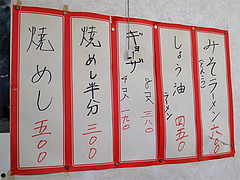 みそラーメン
しょう油
ラーメン
四五〇
ギョーザ
8コ 三八〇
4コ 一九〇
焼めし半分
三〇〇
焼めし
五〇〇